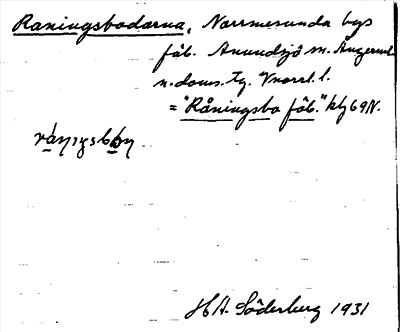 Raningsbodarna, Norrmesunda bys
fäb. Anundsjö sn. Ångerml.
n. doms. tg. Vnorrl. l.
= "Råningsbo fäb." kbl 69N.
H. A. Söderberg 1931